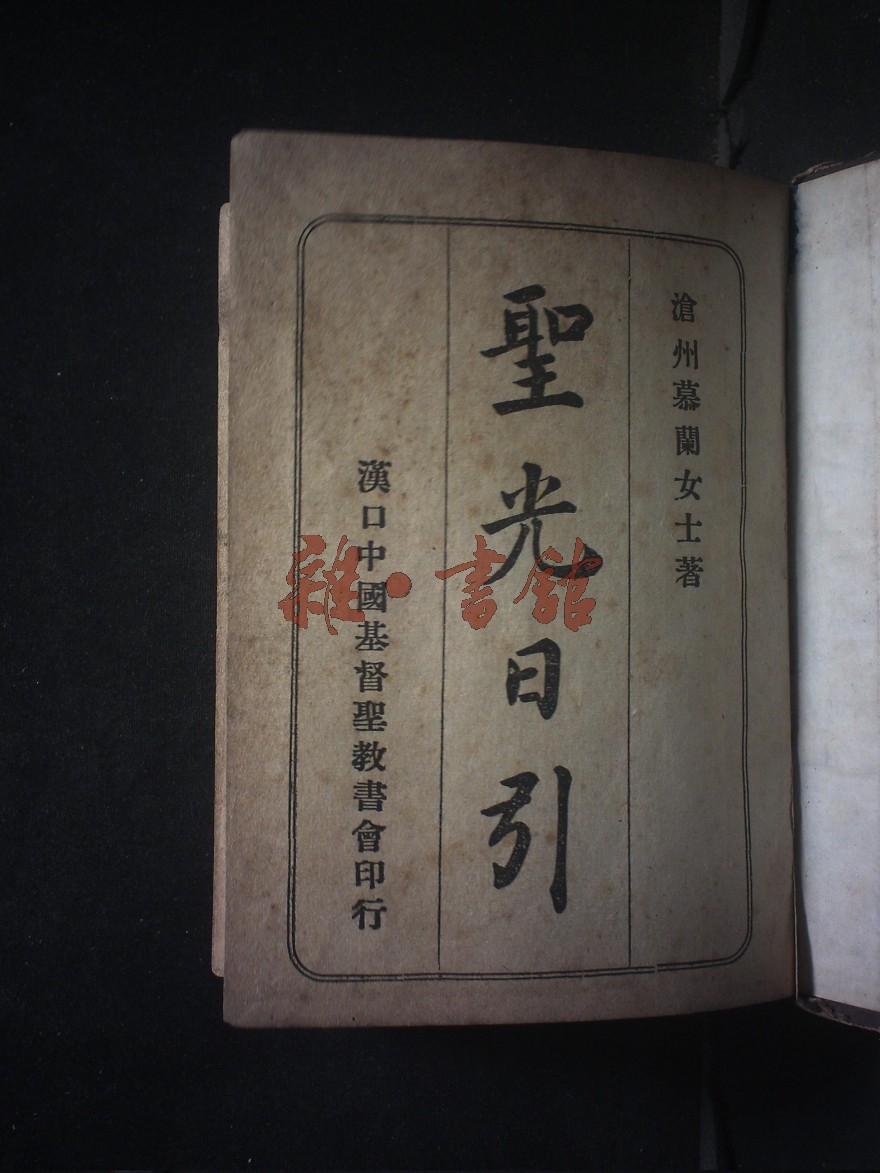 滄州慕蘭女士著
聖光日引
漢口中國基督聖教書會印行
雜·書館